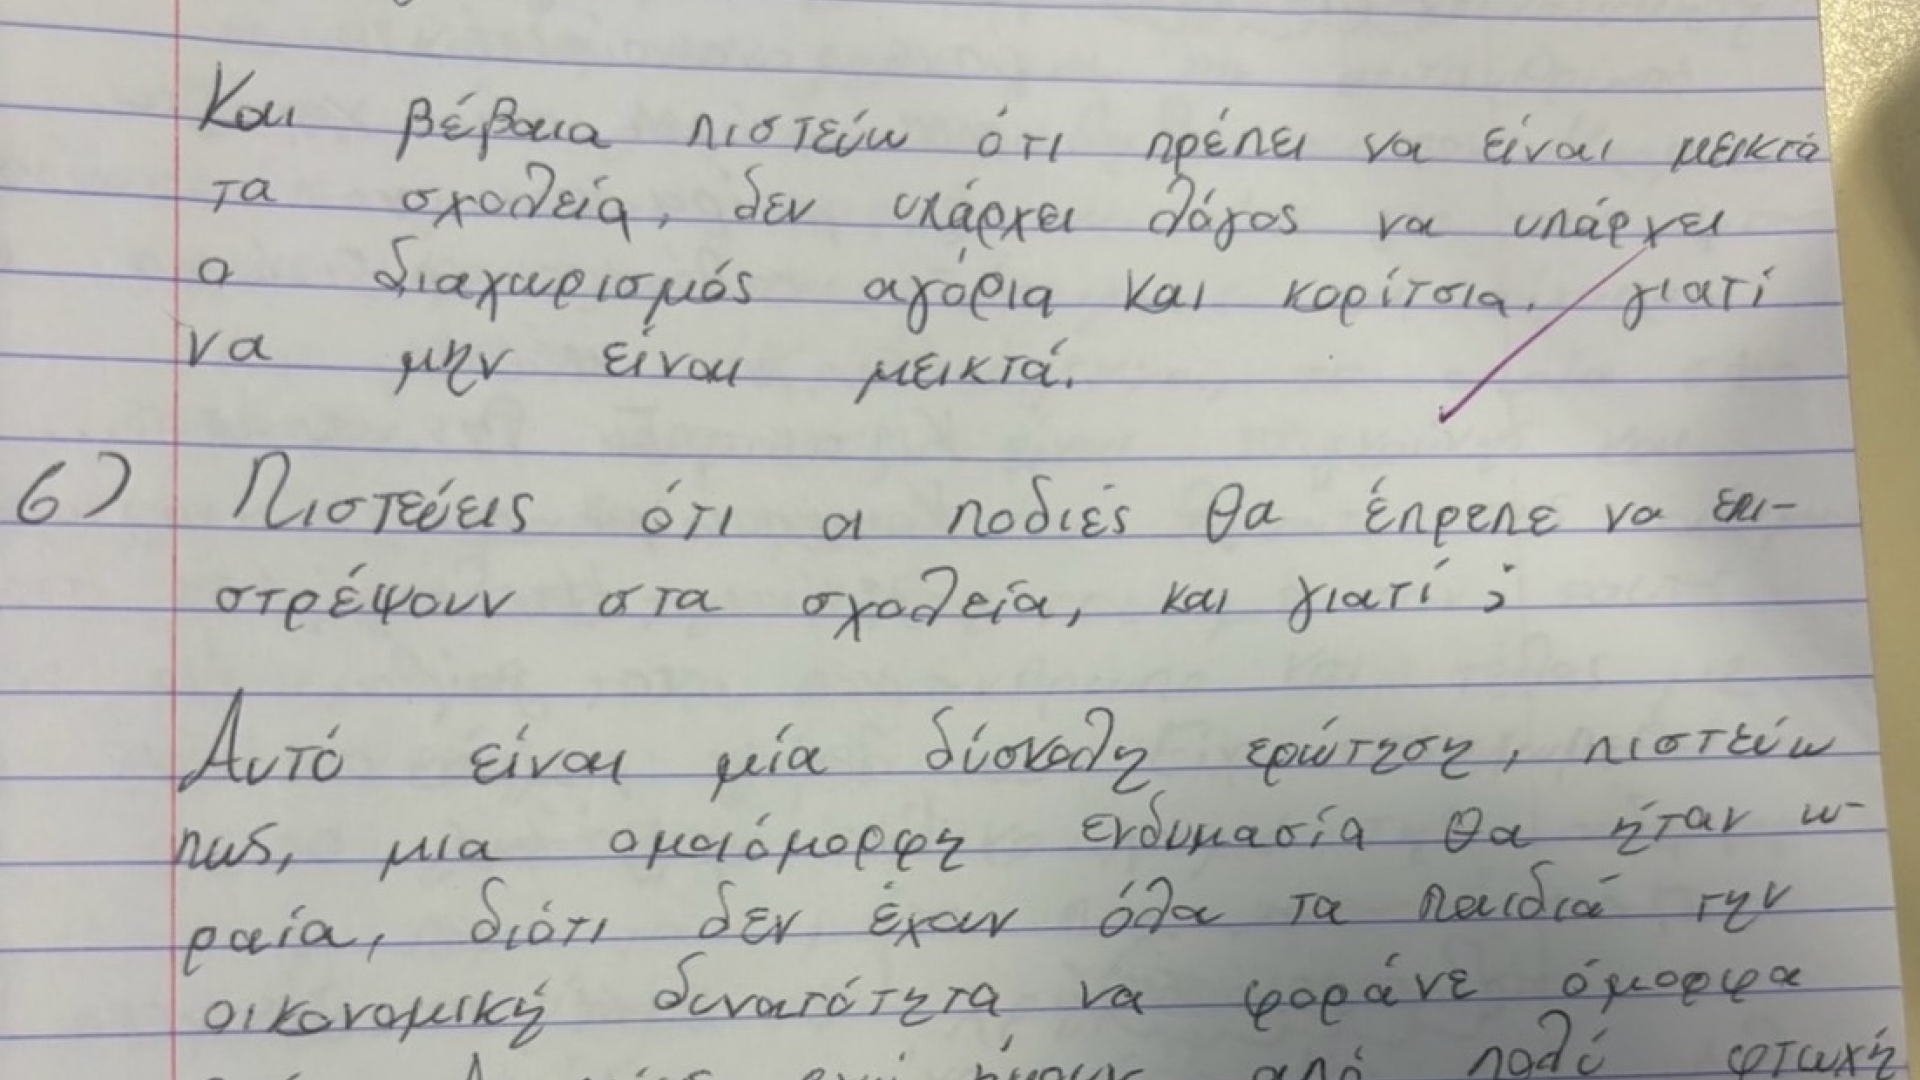 Και βέβαια πιστεύω ότι πρέπει να είναι μεικτά
τα σχολεία, δεν υπάρχει λόγος να υπάρχει
ο διαχωρισμός αγόρια και κορίτσια. γιατί
να μην είναι μεικτά.
6) Πιστεύεις ότι οι ποδιές θα έπρεπε να επι-
στρέψουν στα σχολεία, και γιατί ;
Αυτό είναι μία δύσκολη ερώτηση, πιστεύω
πως, μια ομοιόμορφη ενδυμασία θα ήταν ω-
ραία, διότι δεν έχουν όλα τα παιδιά την
οικονομική δυνατότητα να φοράνε όμορφα
από πολύ φτωχή